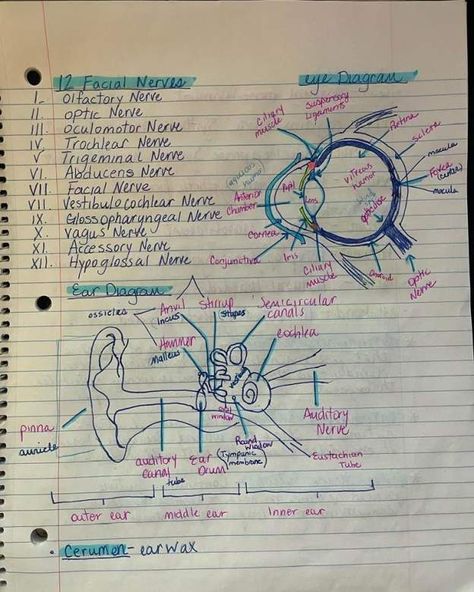 12 Facial Nerves
I. Olfactory Nerve
II. Optic Nerve
III. Oculomotor Nerve
IV. Trochlear Nerve
V. Trigeminal Nerve
VI. Abducens Nerve
VII. Facial Nerve
VIII. Vestibulocochlear Nerve
IX. Glossopharyngeal Nerve
X. Vagus Nerve
XI. Accessory Nerve
XII. Hypoglossal Nerve
eye Diagram
Ciliary
muscle
Suspensory
Ligaments
Retina
Sclera
macula
Fovea
(center)
macula
humor
Anterior
Chamber
Pupil
Lens
vitreous
humor
optic disc
Cornea
Conjunctiva
Iris
Ciliary
muscle
Choroid
Optic
Nerve
Ear Diagram
ossicles
Anvil
Incus
Stirrup
Stapes
Semicircular
canals
Hammer
malleus
Cochlea
window
Round
window
pinna
auricle
auditory
Canal
tube
Ear
Drum
(Tympanic
membrane)
Auditory
Nerve
Eustachian
Tube
outer ear
middle ear
Inner ear
• Cerumen- earwax